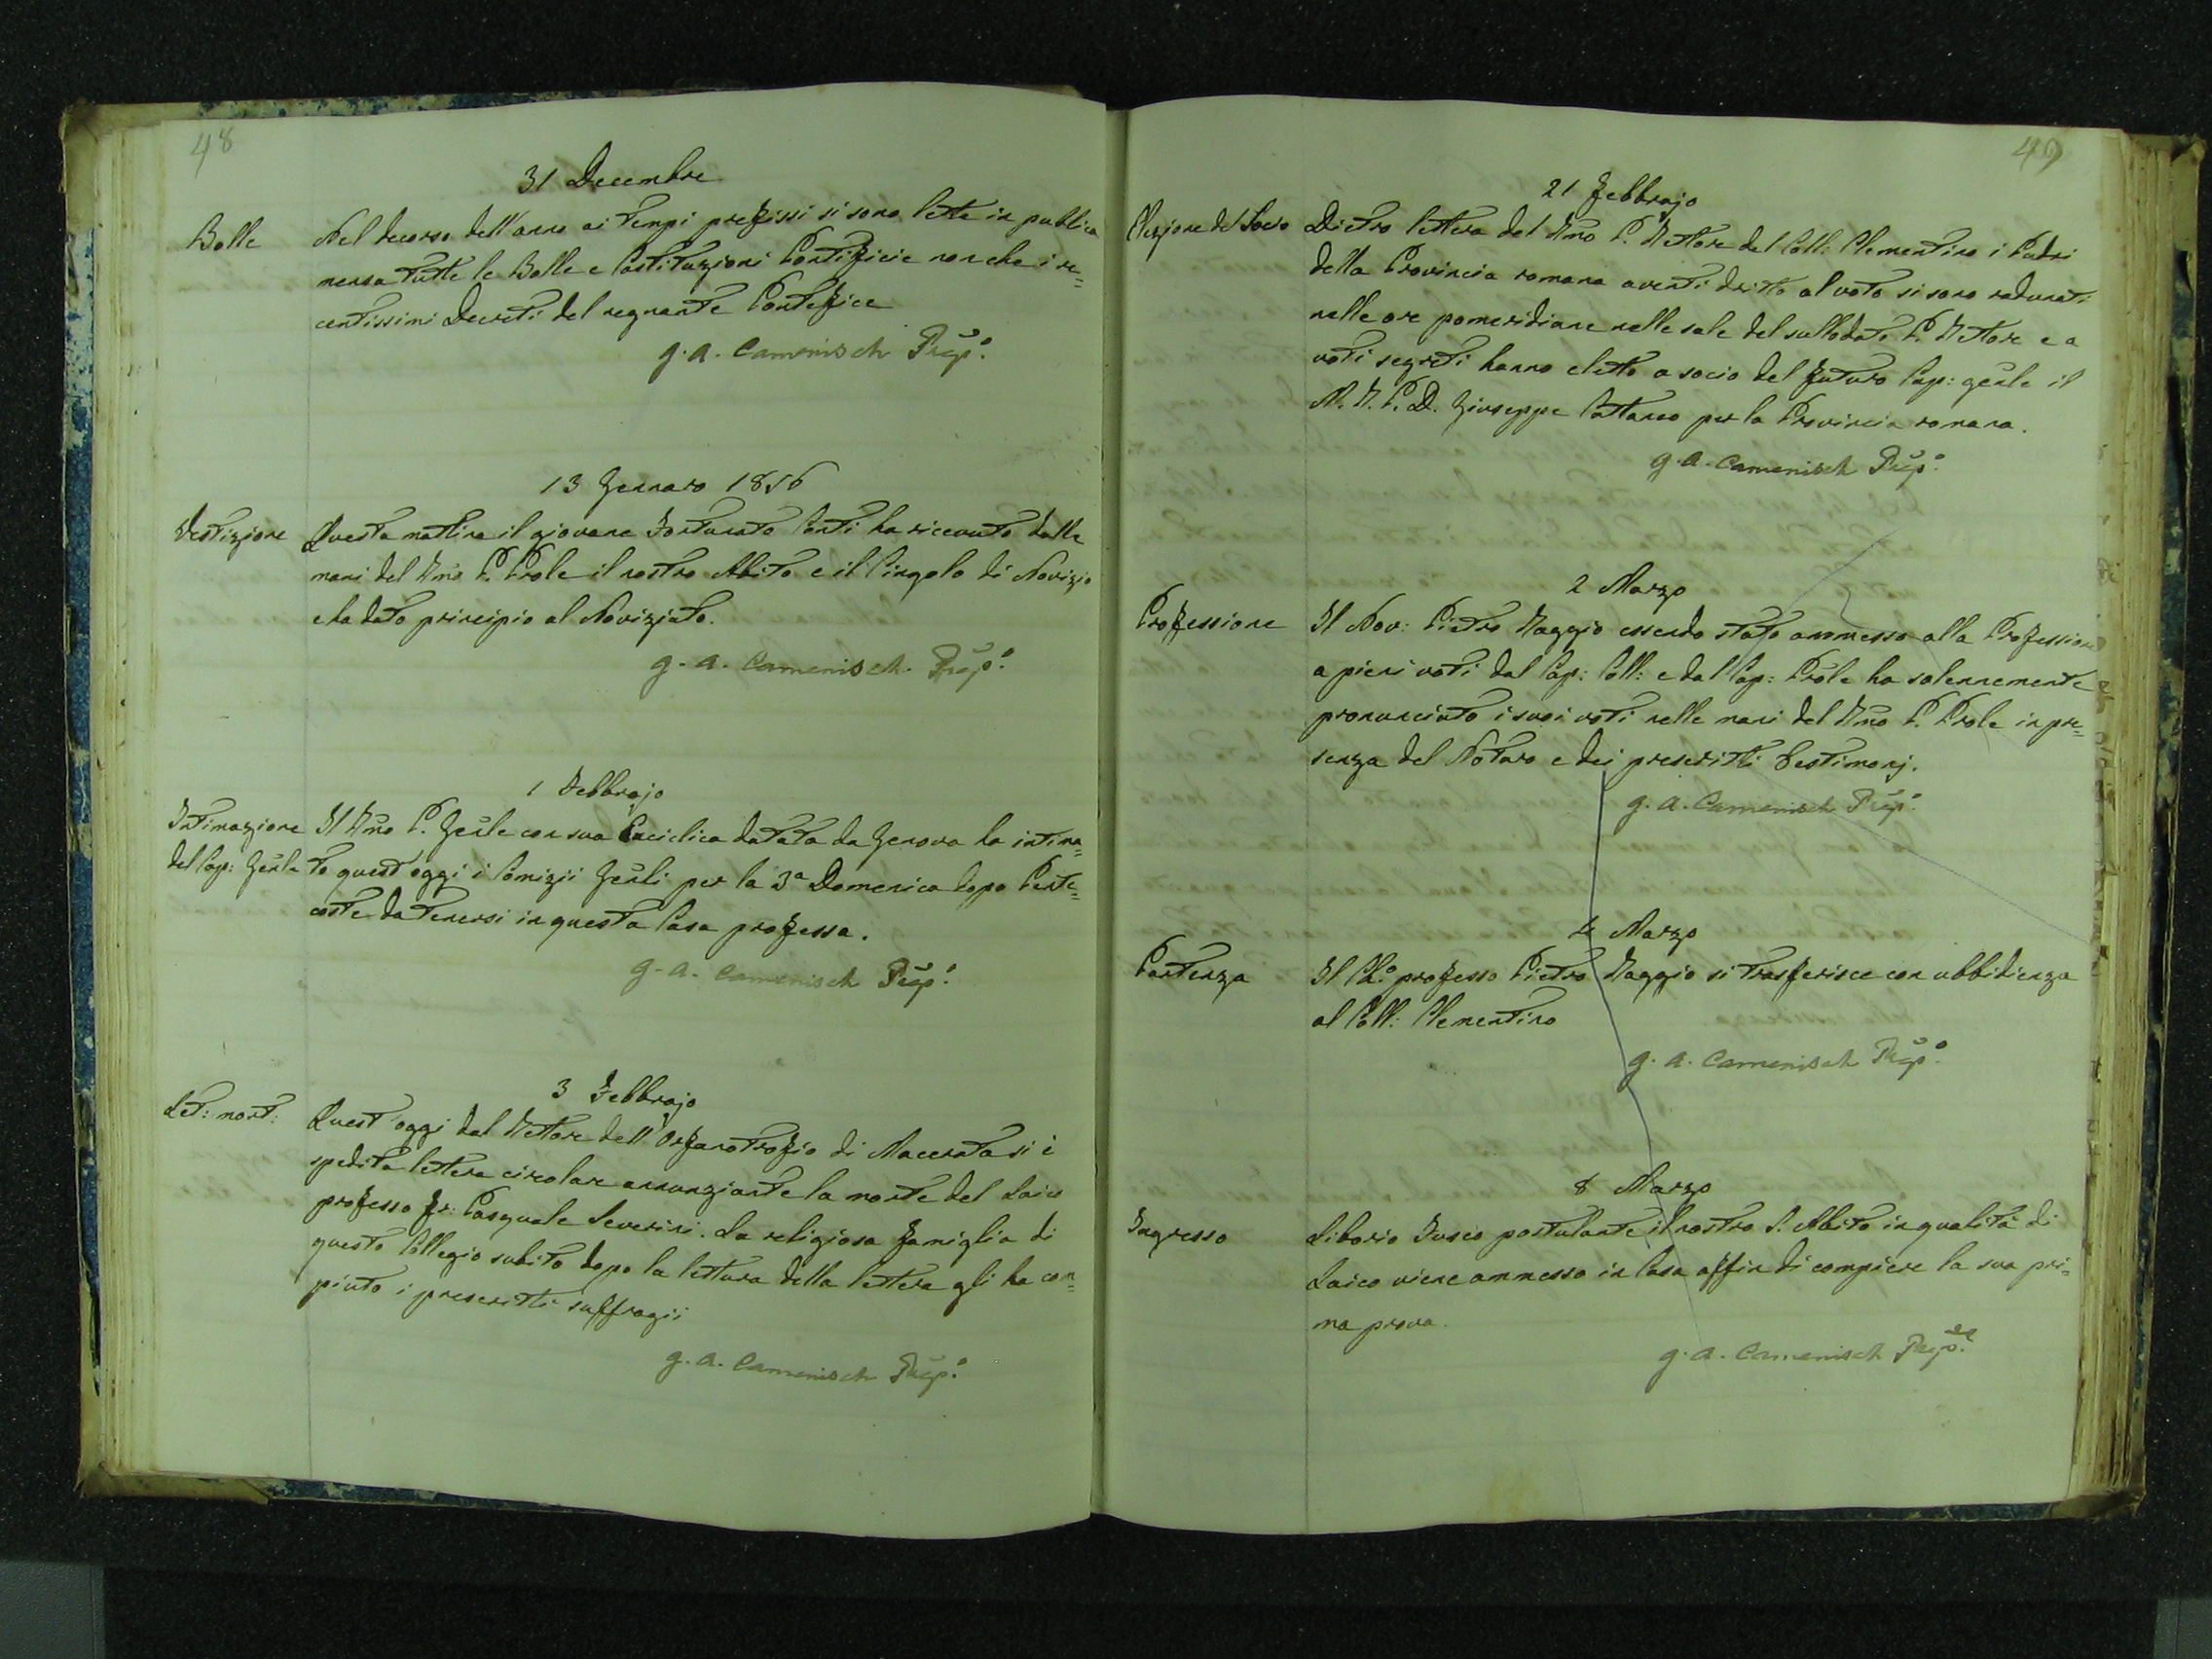 48
31 Decembre
Bolle
Nel decorso dell'anno ai tempi prefissi si sono lette in pubblica
mensa tutte le Bolle e Costituzioni Pontificie non che i re=
centissimi Decreti del regnante Pontefice
G. A. Camenisch Prep.°
13 Gennaro 1856
Vestizione
Questa mattina il giovane Fortunato Conti ha ricevuto dalle
mani del Rmo P. Prole il nostro Abito e il Cingolo di Novizio
e ha dato principio al Noviziato.
G. A. Camenisch. Prep.°
1 Febbrajo
Intimazione
del Cap: Genle
Il Rmo P. Genle con sua Enciclica datata da Genova ha intima=
to quest'oggi i Comizii Genli per la 3a Domenica dopo Pente=
coste da tenersi in questa Casa professa.
G. A. Camenisch Prep.°
3 Febbrajo
Let: mort:
Quest'oggi dal Rettore dell'Orfanotrofio di Macerata si è
spedita lettera circolare annunziante la morte del Laico
professo Fr: Pasquale Severini. La religiosa famiglia di
questo Collegio subito dopo la lettura della lettera gli ha com=
piuto i prescritti suffragii
G. A. Camenisch Prep.°
49
21 Febbrajo
Elezione del Socio
Dietro lettera del Rmo P. Rettore del Coll: Clementino i Padri
della Provincia romana aventi dritto al voto si sono radunati
nelle ore pomeridiane nelle sale del sullodato P. Rettore e a
voti segreti hanno eletto a socio del futuro Cap: genle il
M. R. P. D. Giuseppe Cattaneo per la Provincia romana.
G. A. Camenisch Prep.°
2 Marzo
Professione
Il Nov: Pietro Raggio essendo stato ammesso alla Professione
a pieni voti dal Cap: Coll: e dal Cap: Prole ha solennemente
pronunciato i suoi voti nelle mani del Rmo P. Prole in pre=
senza del Notaro e dei prescritti testimonj.
G. A. Camenisch Prep.°
4 Marzo
Partenza
Il Ch.° professo Pietro Raggio si trasferisce con ubbidienza
al Coll: Clementino
G. A. Camenisch Prep.°
8 Marzo
Ingresso
Liborio Fusco postulante il nostro S. Abito in qualità di
Laico viene ammesso in Casa affin di compiere la sua pri=
ma prova.
G. A. Camenisch Prep.